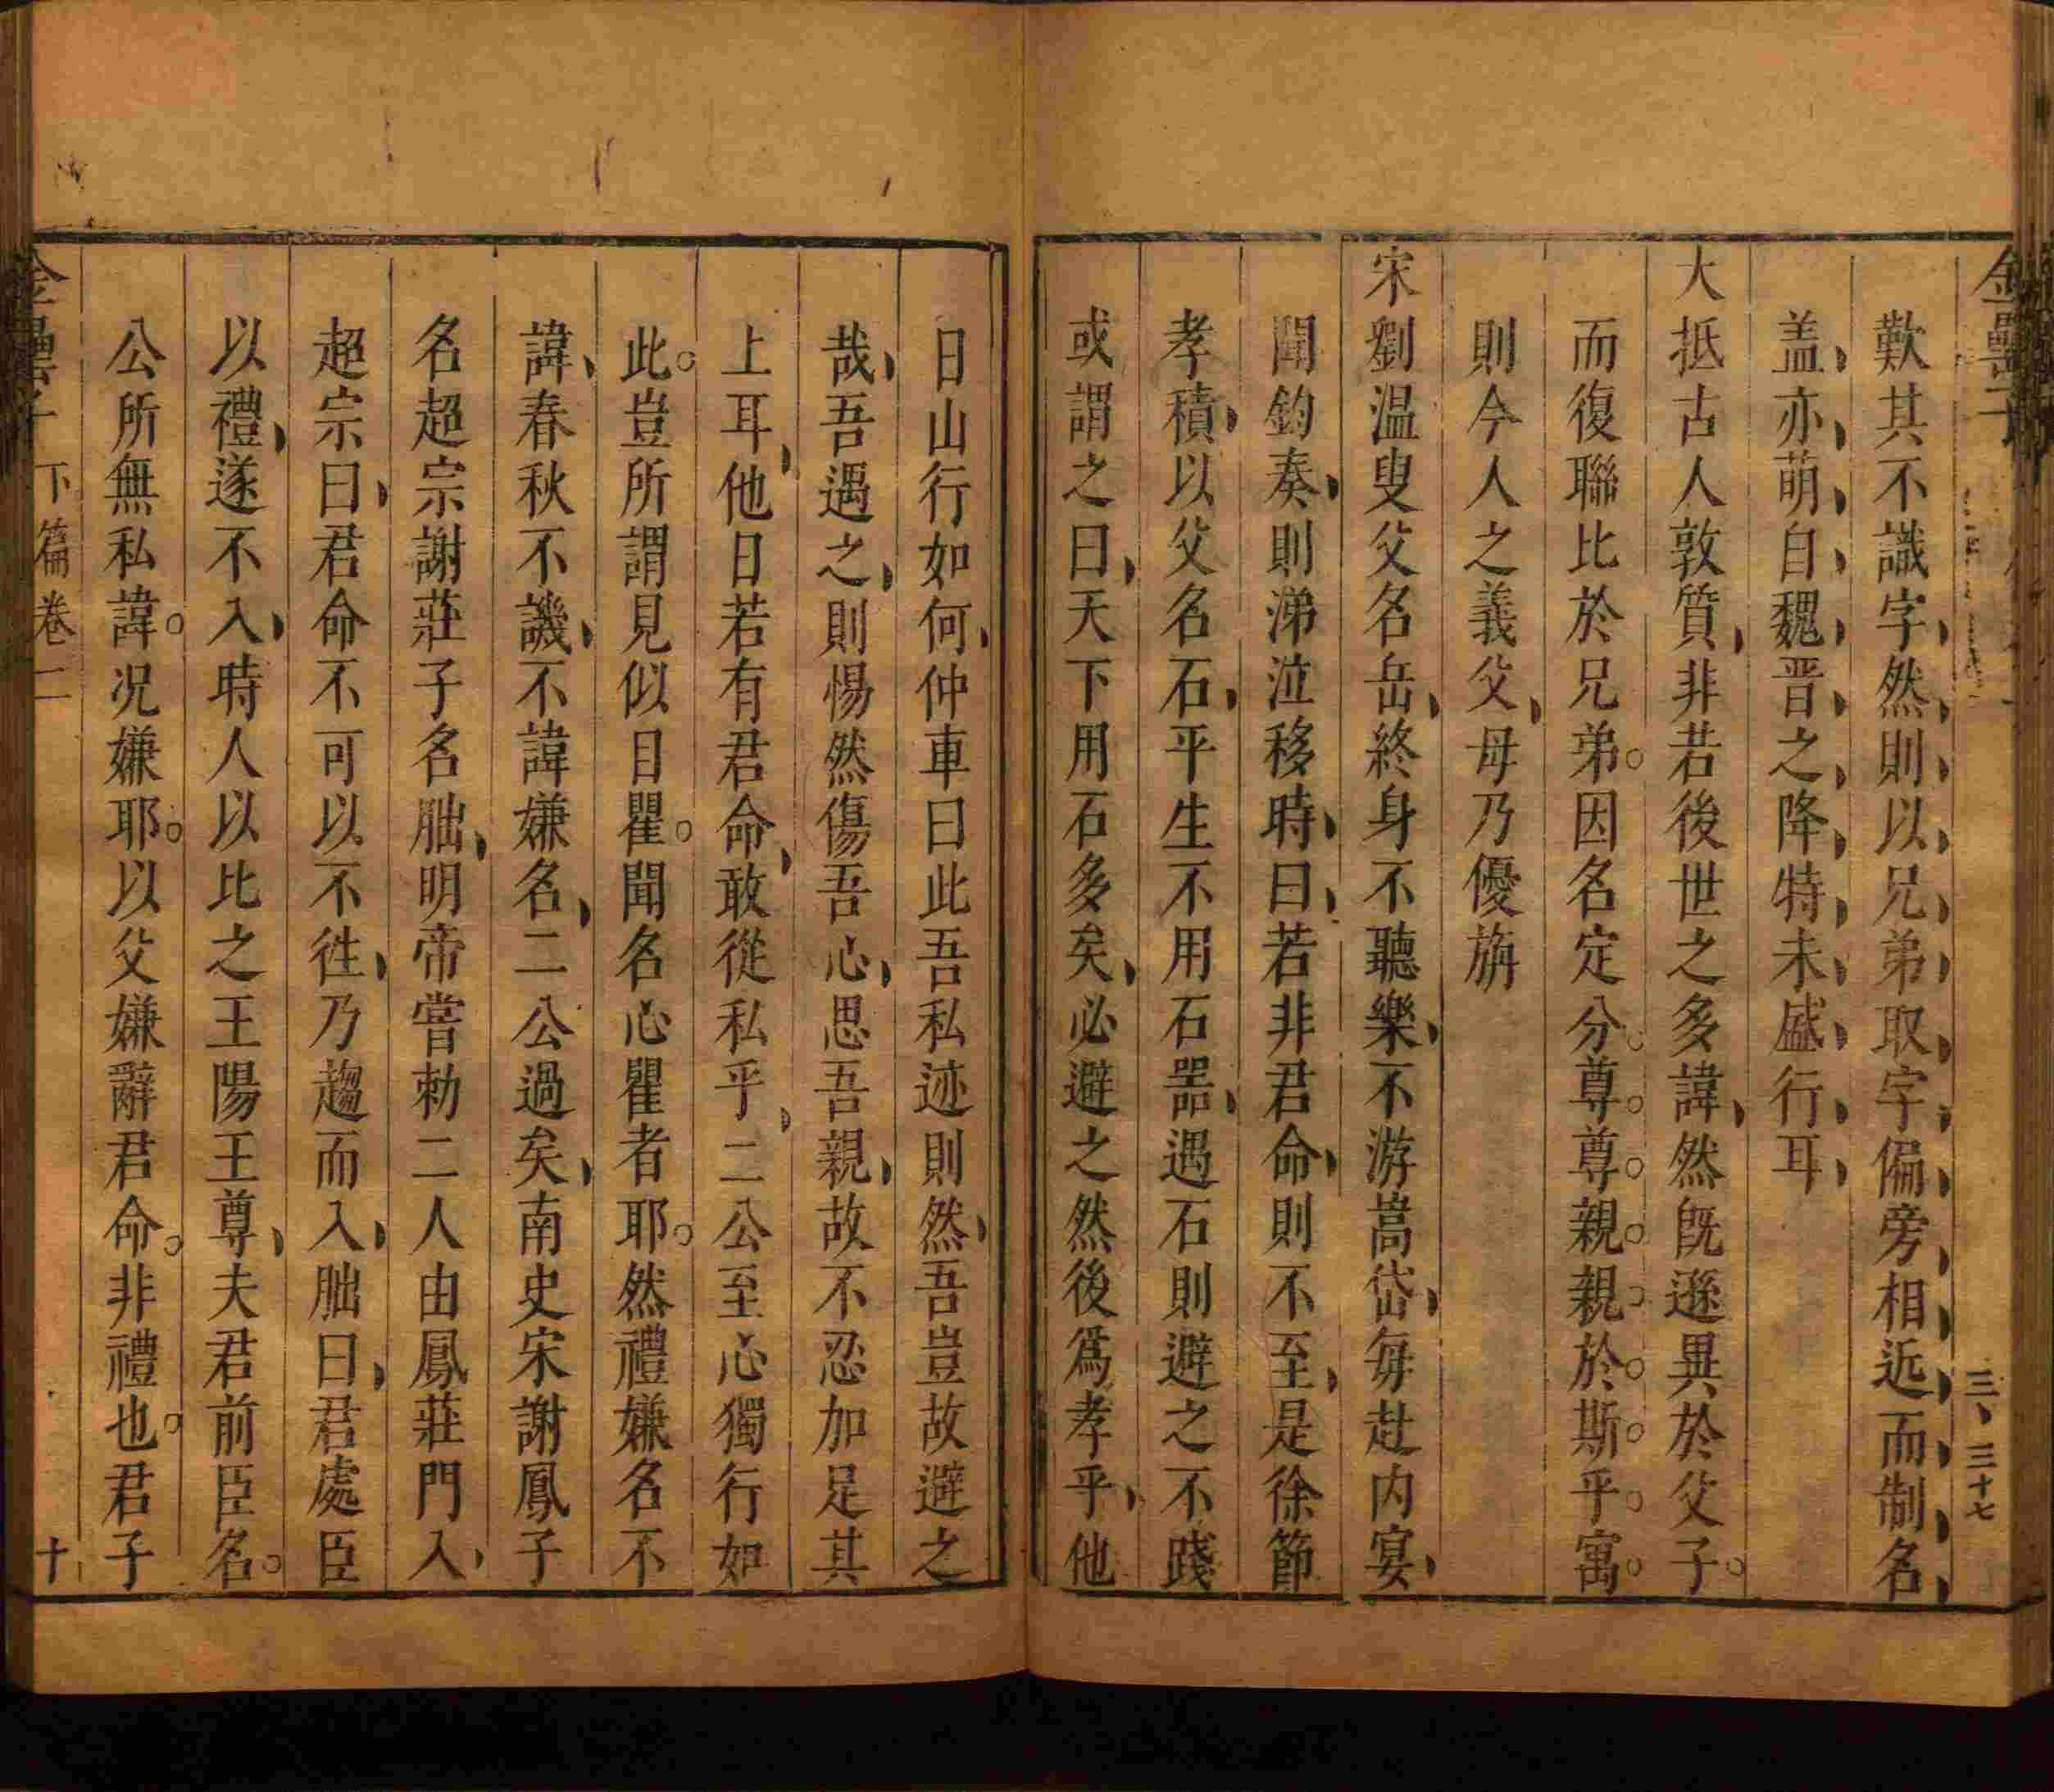 金罍子
三、三十七
歎其不識字然則以兄弟取字偏旁相近而制名
盖亦萌自魏晋之降特未盛行耳
大抵古人敦質非若後世之多諱然旣遜異於父子
而復聯比於兄弟因名定分尊尊親親於斯乎寓
則今人之義父母乃優旃
宋劉温叟父名岳終身不聽樂不游嵩岱毎赴内宴
聞鈞奏則涕泣移時曰若非君命則不至是徐節
孝積以父名石平生不用石噐遇石則避之不踐
或謂之曰天下用石多矣必避之然後爲孝乎他
日山行如何仲車曰此吾私迹則然吾豈故避之
哉吾遇之則惕然傷吾心思吾親故不忍加足其
上耳他日若有君命敢從私乎二公至心獨行如
此豈所謂見似目瞿聞名心瞿者耶然禮嫌名不
諱春秋不譏不諱嫌名二公過矣南史宋謝鳳子
名超宗謝莊子名朏明帝嘗勅二人由鳳莊門入
超宗曰君命不可以不徃乃趨而入朏曰君處臣
以禮遂不入時人以比之王陽王尊夫君前臣名
公所無私諱况嫌耶以父嫌辭君命非禮也君子
金罍子 下篇卷二 十